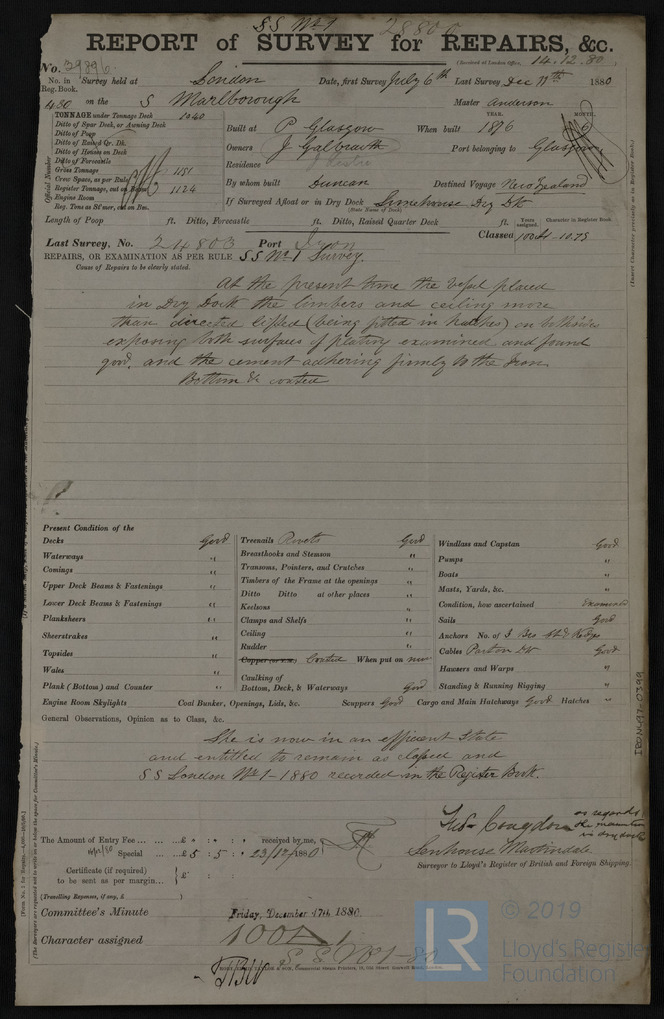 SS No 1
REPORT of SURVEY for REPAIRS, &c.
(Received at London Office, 14.12.80)
No. 29896
No. in Reg. Book. Survey held at London Date, first Survey July 6th Last Survey Dec 13th 1880
430 on the S Marlborough Master Anderson
TONNAGE under Tonnage Deck 1040
Ditto of Spar Deck, or Awning Deck
Ditto of Poop
Ditto of Raised Qr. Dk.
Ditto of Houses on Deck
Ditto of Forecastle
Gross Tonnage 1151
Crew Space, as per Rule
Register Tonnage, cut on Beam 1124
Engine Room
Reg. Tons as St'mer, cut on Bm.
Official Number
YEAR. MONTH.
Built at P Glasgow When built 1876
Owners J Galbraith Port belonging to Glasgow
Residence
By whom built Duncan Destined Voyage New Zealand
If Surveyed Afloat or in Dry Dock Limehouse Dry Dk
(State Name of Dock)
Length of Poop ft. Ditto, Forecastle ft. Ditto, Raised Quarter Deck ft.
Years assigned. Character in Register Book
Last Survey, No. 24803 Port Lyon Classed 100A1-10.75
REPAIRS, OR EXAMINATION AS PER RULE SS No 1 Survey.
Cause of Repairs to be clearly stated.
At the present time the vessel placed
in Dry Dock the limbers and ceiling more
than directed lifted (being fitted in hatches) on both sides
exposing both surfaces of plating examined and found
good, and the cement adhering firmly to the Iron
Bottom &c coated
Present Condition of the
Decks Good
Waterways "
Comings "
Upper Deck Beams & Fastenings "
Lower Deck Beams & Fastenings "
Planksheers "
Sheerstrakes "
Topsides "
Wales "
Plank (Bottom) and Counter "
Treenails Rivets Good
Breasthooks and Stemson "
Transoms, Pointers, and Crutches "
Timbers of the Frame at the openings "
Ditto Ditto at other places "
Keelsons "
Clamps and Shelfs "
Ceiling "
Rudder "
Copper (or Y.M.) Coated When put on now
Caulking of
Bottom, Deck, & Waterways Good
Windlass and Capstan Good
Pumps "
Boats "
Masts, Yards, &c. "
Condition, how ascertained Examined
Sails Good
Anchors No. of 3 Bro
Cables Good
Hawsers and Warps "
Standing & Running Rigging "
Engine Room Skylights Coal Bunker, Openings, Lids, &c. Scuppers Good Cargo and Main Hatchways Good Hatches "
General Observations, Opinion as to Class, &c.
She is now in an efficient state
and entitled to remain as classed and
SS London No 1-1880 recorded in the Register Book.
The Amount of Entry Fee ... £ : : received by me,
Special ... £5 : 5 : 23/12/1880
Certificate (if required)
to be sent as per margin... £ :
(Travelling Expenses, if any, £ )
Congdon
as regards
the examination
in dry dock
Senhouse Martindale
Surveyor to Lloyd's Register of British and Foreign Shipping.
Committee's Minute Friday, December 17th 1880.
Character assigned 100A1
S.S. No 1-80
IRON497-0399
LR
© 2019
Lloyd's Register
Foundation